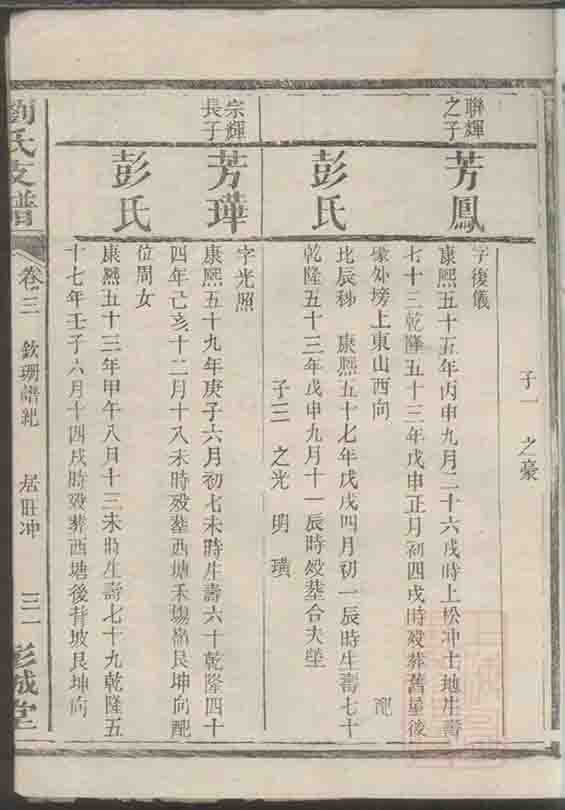 聯輝之子
芳鳳
彭氏
宗輝長子
芳璍
彭氏
子一 之豪
字復儀
康熙五十五年丙申九月二十六戌時上松冲土地生壽
七十三乾隆五十三年戊申正月初四戌時歿葬舊屋後
外塝上東山西向 配
北辰秒 康熙五十七年戊戌四月初一辰時生壽七十一
乾隆五十三年戊申九月十一辰時歿葬合夫塋
子三 之光 明 璜
字光照
康熙五十九年庚子六月初七未時生壽六十乾隆四十
四年己亥十二月十八未時歿塟西塘禾場嶺艮坤向配
位周女
康熙五十三年甲午八月十三未時生壽七十九乾隆五
十七年壬子六月十四戌時歿葬西塘後背坡艮坤向
劉氏支譜
卷三 欽珊譜紀 居旺冲 三一 彭城堂